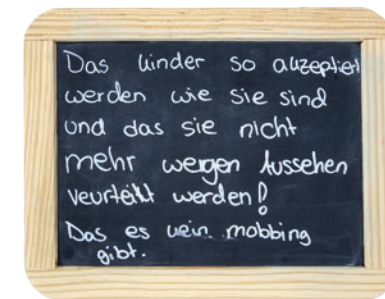 Das kinder so akzeptiert
werden wie sie sind
und das sie nicht
mehr wergen Aussehen
veurteilt werden!
Das es kein mobbing
gibt.